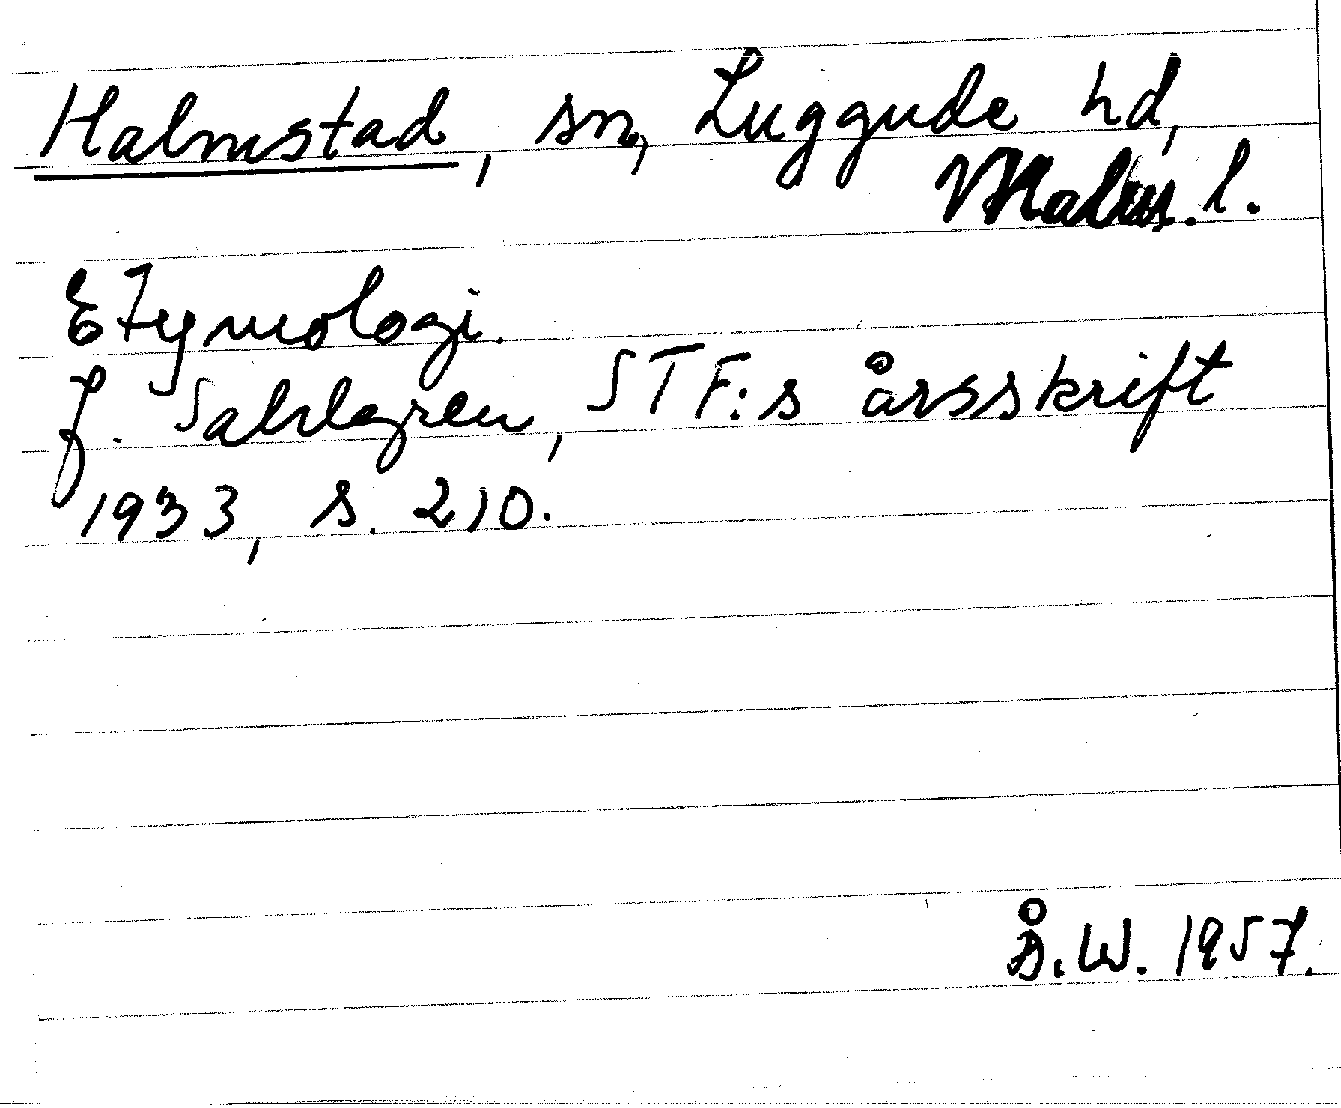 Halmstad, sn, Luggude hd,
Malm. l.
Etymologi.
J. Sahlgren, STF:s årsskrift
1933, s. 210.
Å.W. 1957.